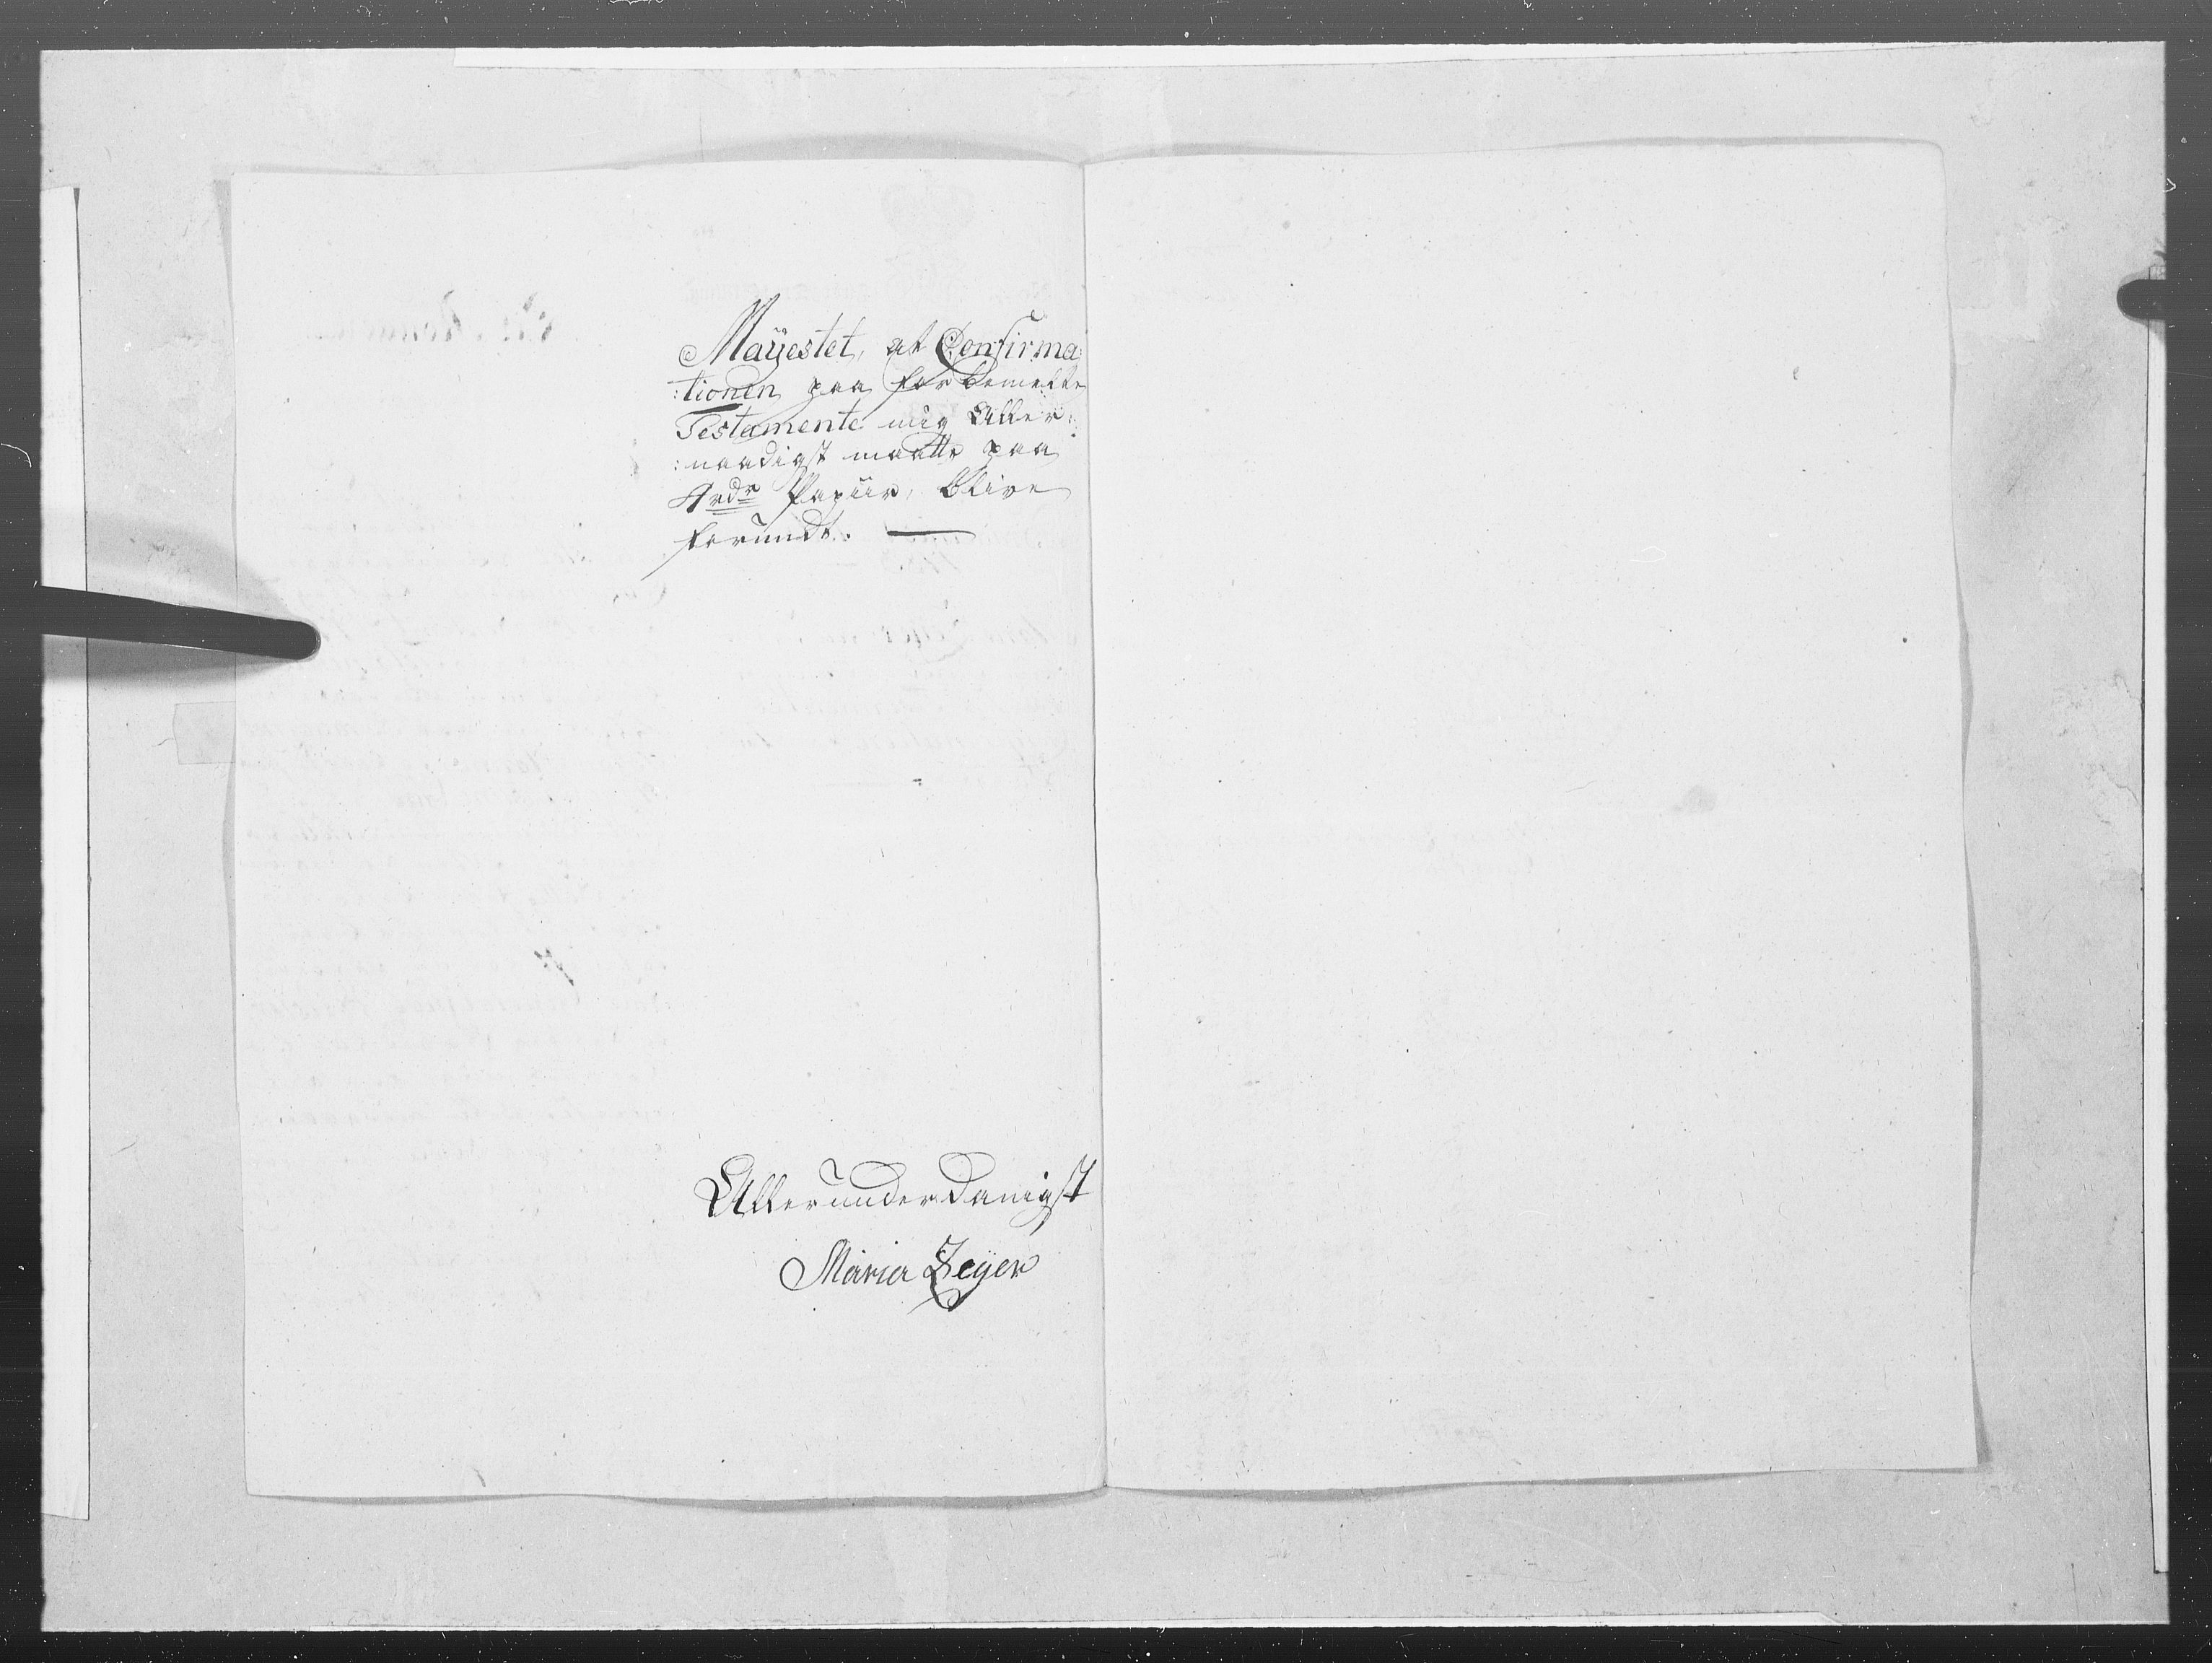 Mayestet, at Confirma:
:tionen paa forbemelte
Testamente mig Aller:
:naadigst maatte paa
4rdr Papiir, blive
forundt.
Allerunderdanigst
Maria Zeyer